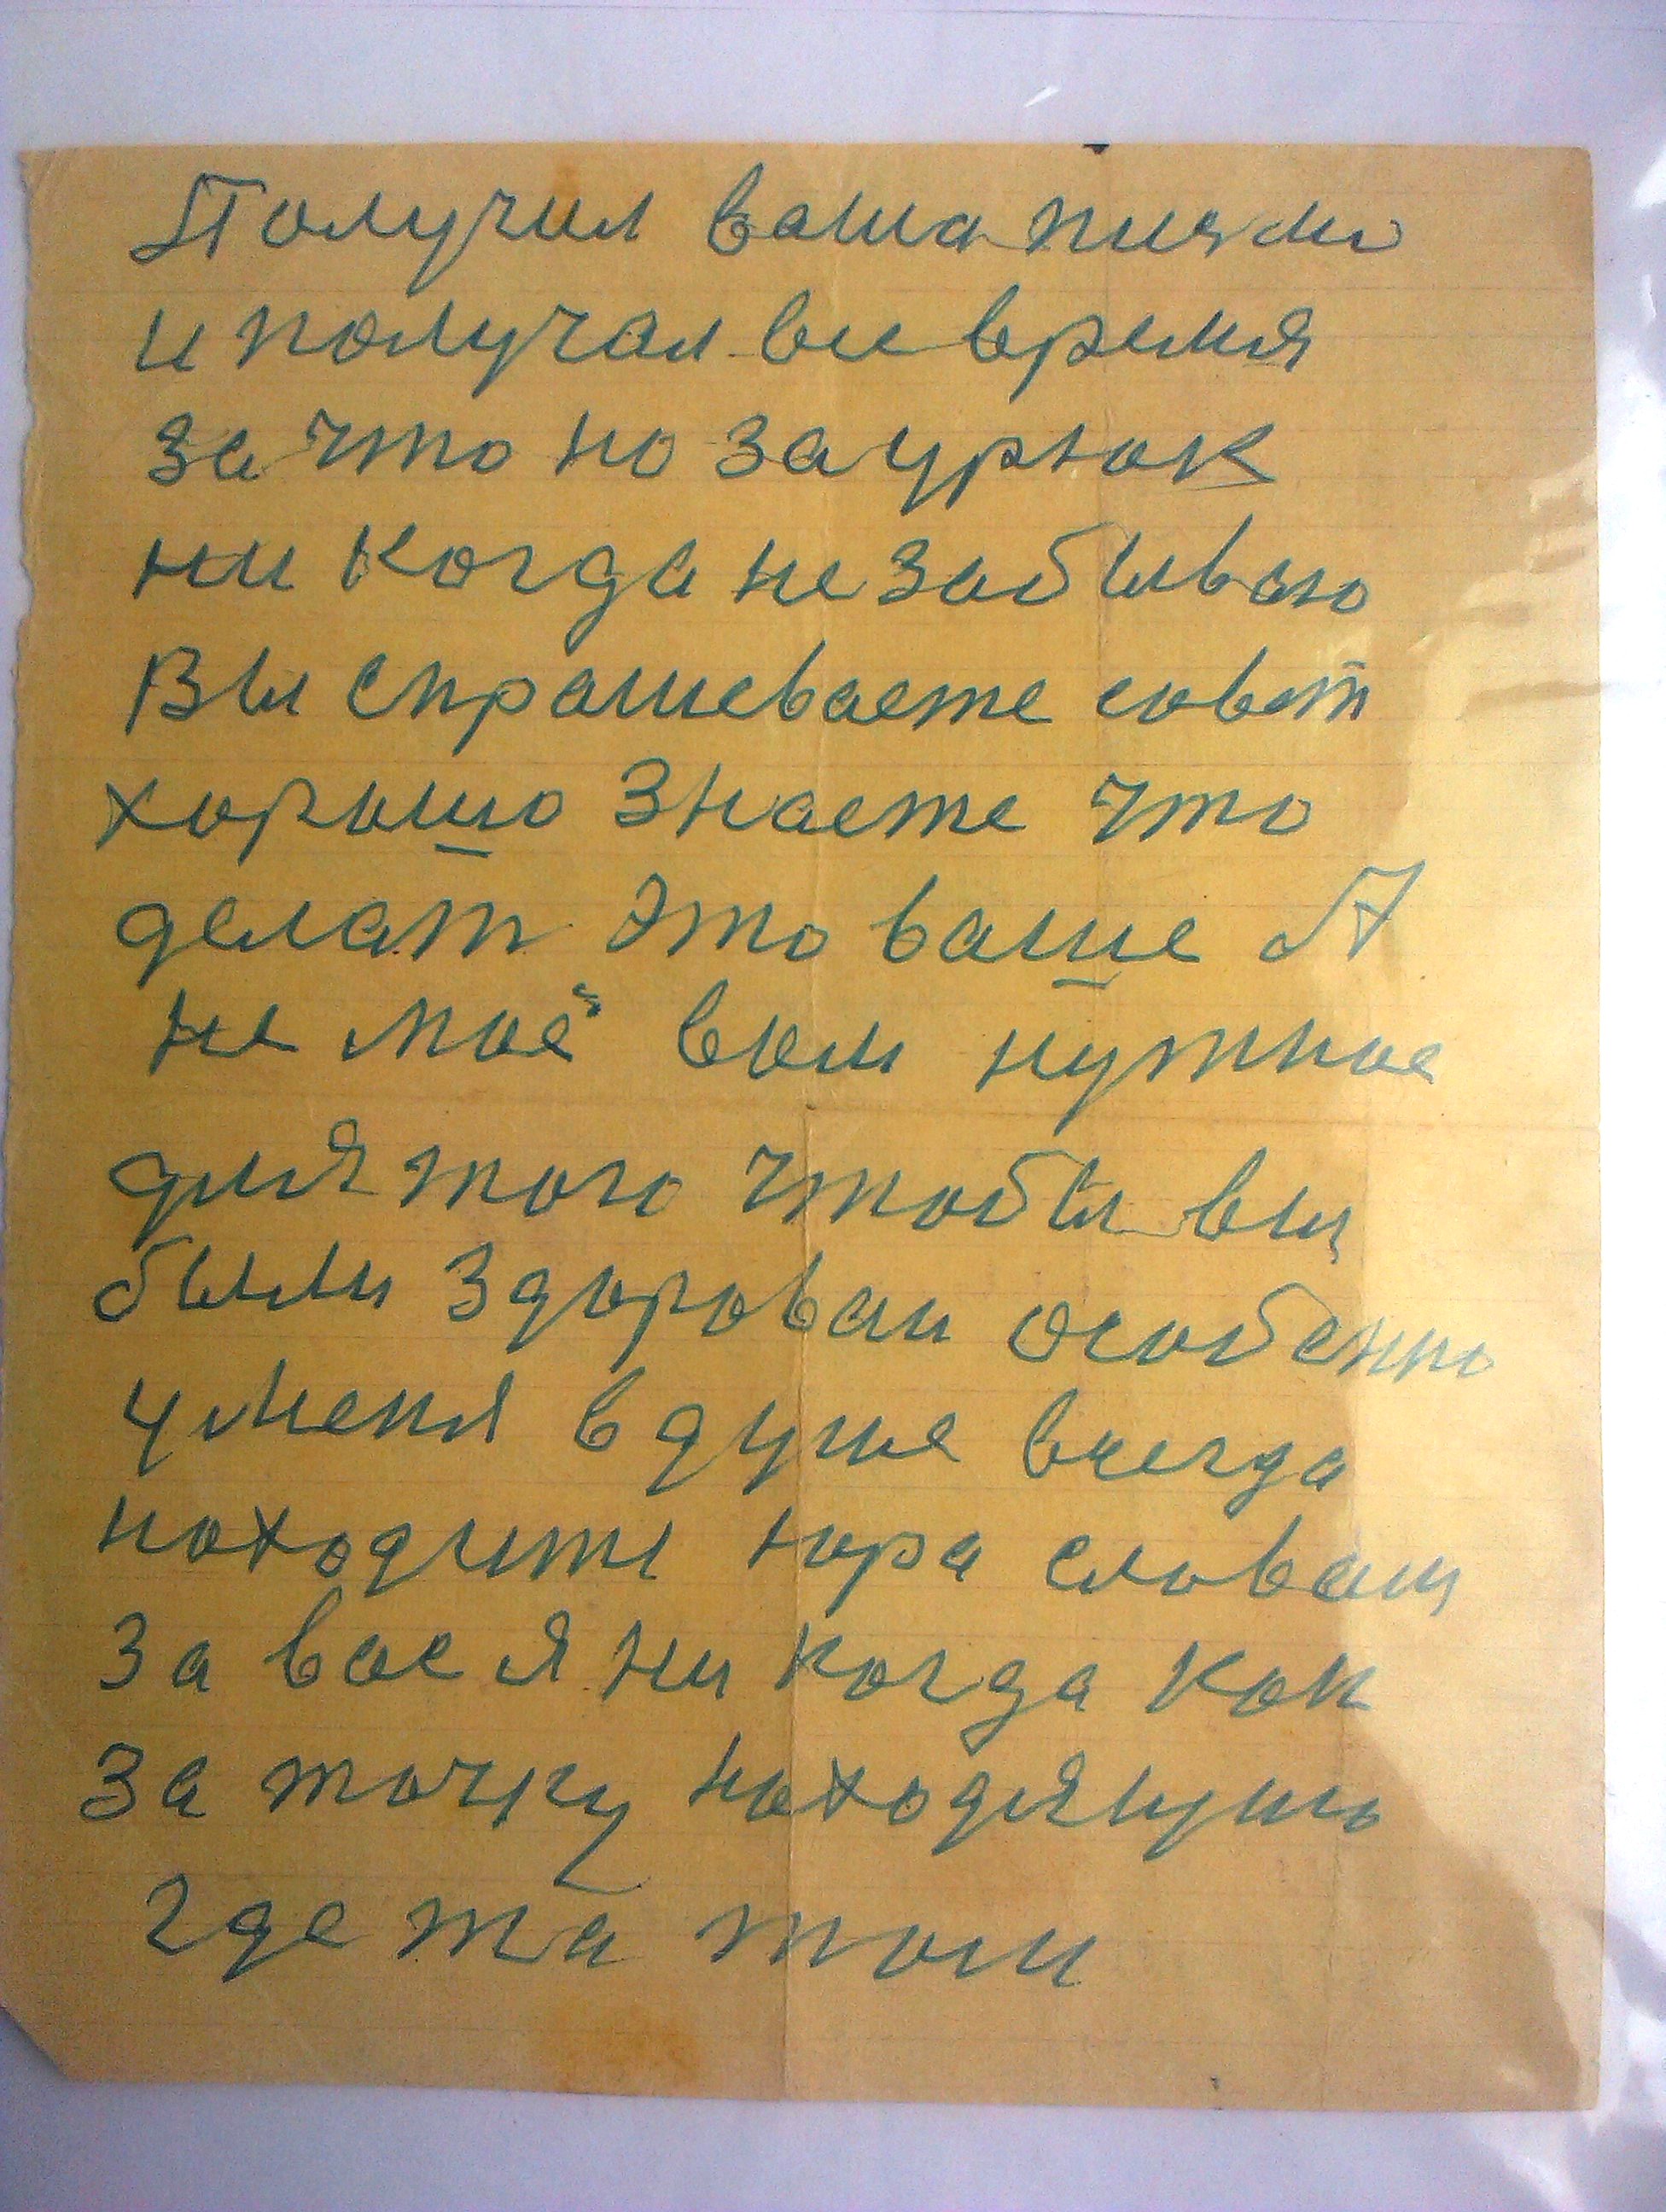 Получил ваша письмо
и получал все время
за что но за урюк
ни когда не забываю
Вы спрашеваете совет
хорошо знаете что
делат это ваше А
не моё вам нужное
для того чтобы вы
были здоровам особенно
у меня в душе всегда
находите пора словам
за вас я ни когда как
за точку находя
где та там